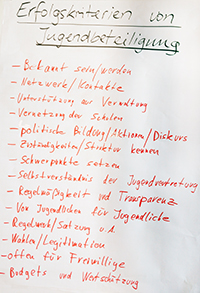 Erfolgskriterien von
Jugendbeteiligung
- Bekannt sein/werden
- Netzwerk/Kontakte
- Unterstützung zur Verwaltung
- Vernetzung der Schulen
- politische Bildung/Aktionen/Diskurs
- Zuständigkeiten/Struktur kennen
- Schwerpunkte setzen
- Selbstverständnis der Jugendvertretung
- Regelmäßigkeit und Transparenz
- Von Jugendlichen für Jugendliche
- Regelwerk/Satzung u.A.
- Wahlen/Legitimation
- offen für Freiwillige
- Budgets und Wertschätzung